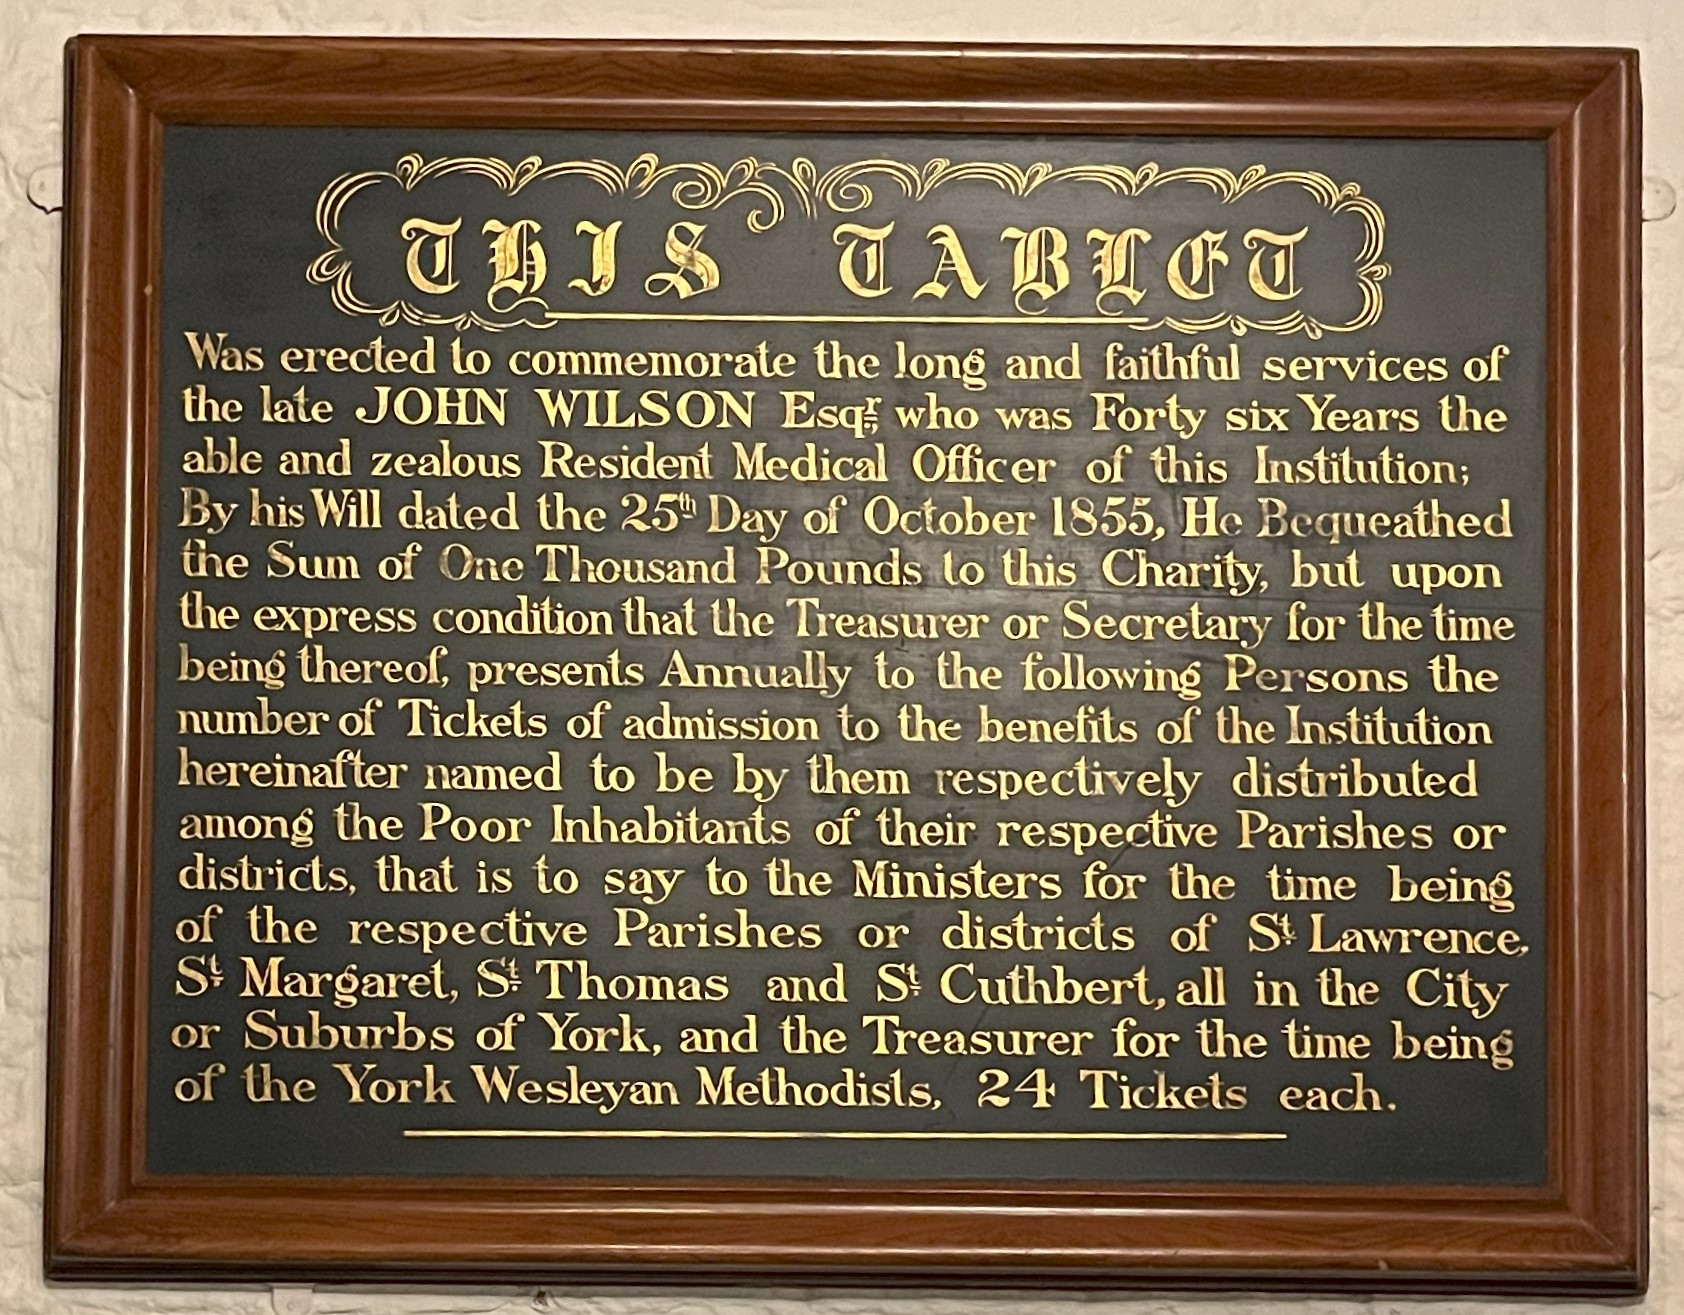 THIS TABLET
Was erected to commemorate the long and faithful services of
the late JOHN WILSON Esqr, who was Forty six Years the
able and zealous Resident Medical Officer of this Institution;
By his Will dated the 25th Day of October 1855, He Bequeathed
the Sum of One Thousand Pounds to this Charity, but upon
the express condition that the Treasurer or Secretary for the time
being thereof, presents Annually to the following Persons the
number of Tickets of admission to the benefits of the Institution
hereinafter named to be by them respectively distributed
among the Poor Inhabitants of their respective Parishes or
districts, that is to say to the Ministers for the time being
of the respective Parishes or districts of St. Lawrence,
St. Margaret, St. Thomas and St. Cuthbert, all in the City
or Suburbs of York, and the Treasurer for the time being
of the York Wesleyan Methodists, 24 Tickets each.